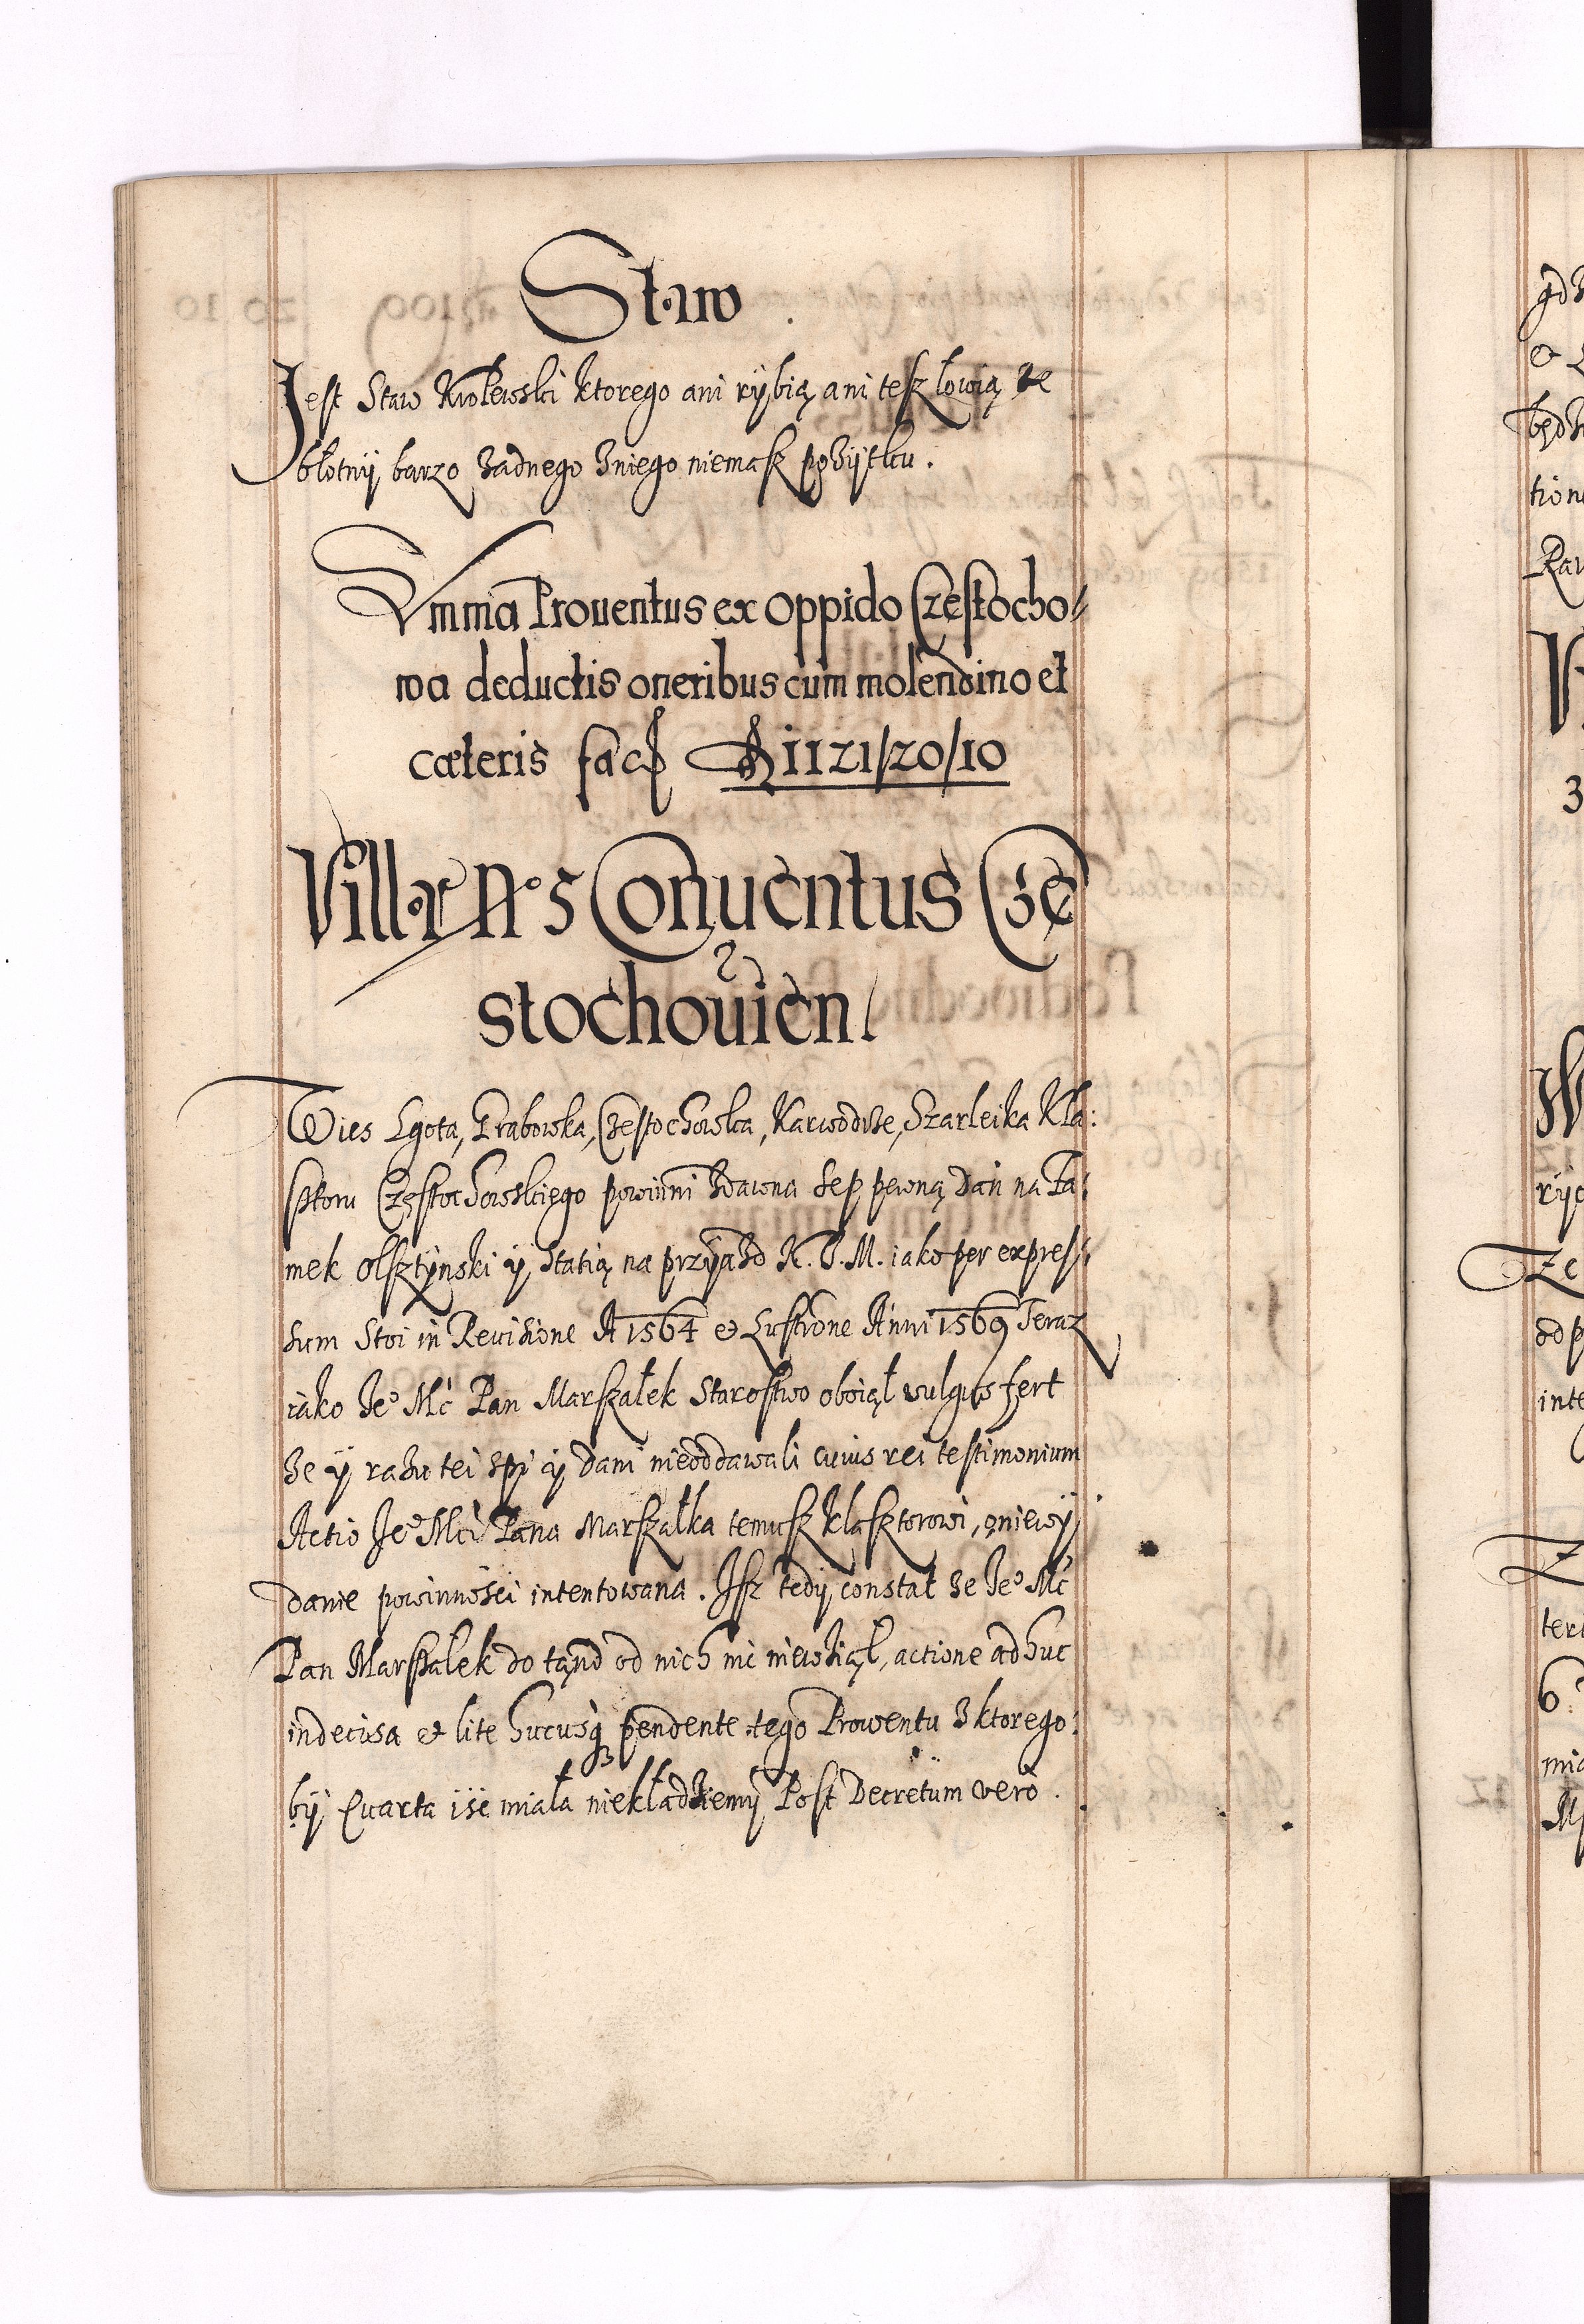 Staw
Jest Staw Krolewski ktorego ani rÿbią ani tesz lowią ze
błotnÿ barzo żadnego zniego niemasz pożÿtku.
Summa Prouentus ex oppido Częstocho
wa deductis oneribus cum molendino et
cæteris fac 1121/20/10
Villæ Conuentus Czę
stochouien
Wies Lgota, Grabowka, Częstochowka, Karwodrże, Szarleika Kla:
sztoru Częstochowskiego powinni zdawna sep pewną dań na Za:
mek Olsztÿnski ÿ statią na przÿazd K. J. M. iako per expres
sum stoi in Reuisione A 1564 et Lustrone Anni 1569 Teraz
iako Je° Mć Pan Marszałek Starostwo obiął vulgus fert
że ÿ razu tei spi ÿ dani nieoddawali cuius rei testimonium
Actio Je° Mci Pana Marszałka temusz klasztorowi, o niewÿ
danie powinności intentowana. Isz tedÿ constat że Je° Mć
Pan Marszałek do tąnd od nich nic niewziął, actione adhuc
indecisa et lite hucusq pendente tego Prowentu z ktorego
bÿ Quarta isć miała niekładziemÿ Post Decretum vero.
gdz
et
będz
tion
Rav
3
rÿc
Ze
od p
inte
Z
teru
6
mia